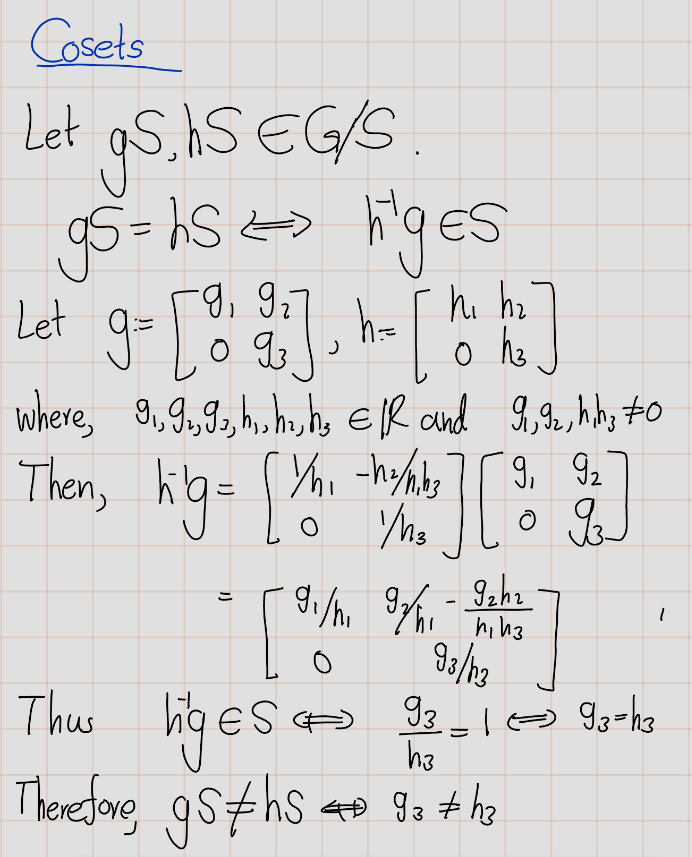 Cosets
Let gS, hS ∈ G/S.
gS = hS ⟺ h⁻¹g ∈ S
Let g := [g₁ g₂; 0 g₃], h := [h₁ h₂; 0 h₃]
where, g₁, g₂, g₃, h₁, h₂, h₃ ∈ ℝ and g₁, g₂, h₁h₃ ≠ 0
Then, h⁻¹g = [1/h₁ -h₂/h₁h₃; 0 1/h₃] [g₁ g₂; 0 g₃]
= [g₁/h₁ g₂/h₁ - g₂h₂/h₁h₃; 0 g₃/h₃]
Thus h⁻¹g ∈ S ⟺ g₃/h₃ = 1 ⟺ g₃ = h₃
Therefore, gS ≠ hS ⟺ g₃ ≠ h₃